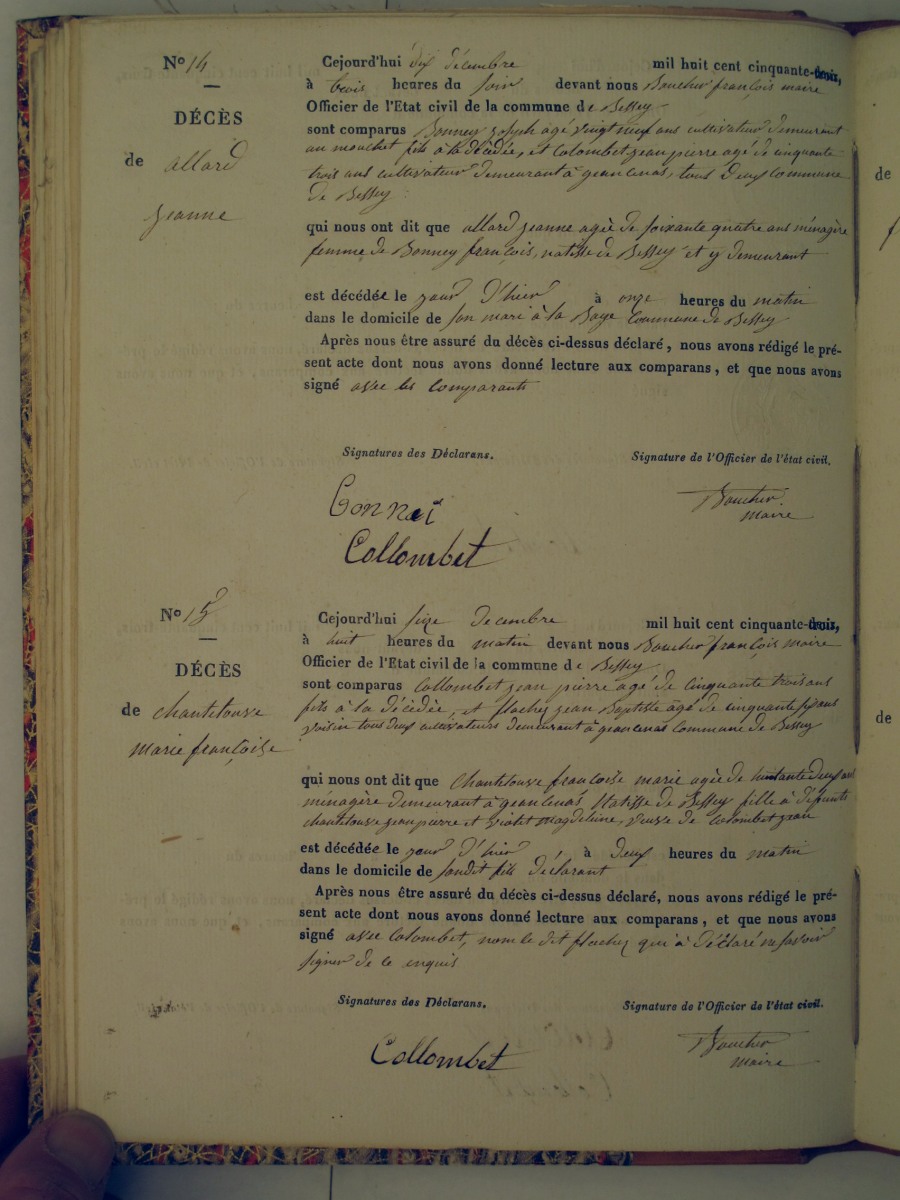 No 14
DÉCÈS
de allard
jeanne
Cejourd'hui dix décembre mil huit cent cinquante-trois,
à trois heures du soir devant nous Boucher françois maire
Officier de l'Etat civil de la commune de Bessey
sont comparus Bonney joseph agé vingt neuf ans cultivateur demeurant
au mouchet fils à la décédée, et Colombet jean pierre agé de cinquante
trois ans cultivateur demeurant à jeancenas, tous deux Commune
de Bessey
qui nous ont dit que allard jeanne agée de soixante quatre ans ménagère
femme de Bonney françois, natisse de Bessey et y demeurant
est décédée le jour d'hier à onze heures du matin
dans le domicile de son mari à la Baye Commune de Bessey
Après nous être assuré du décès ci-dessus déclaré, nous avons rédigé le pré-
sent acte dont nous avons donné lecture aux comparans, et que nous avons
signé avec les comparants
Signatures des Déclarans.
Signature de l'Officier de l'état civil.
Bonnai
Boucher
maire
Collombet
No 15
DÉCÈS
de chantelouve
marie françoise
Cejourd'hui seize decembre mil huit cent cinquante-trois,
à huit heures du matin devant nous Boucher françois maire
Officier de l'Etat civil de la commune de Bessey
sont comparus Collombet jean pierre agé de cinquante trois ans
fils à la décédée, et flachez jean Baptiste agé de cinquante ans
voisin tous deux cultivateurs demeurant à jeancenas commune de Bessey
qui nous ont dit que Chantelouve françoise marie agée de huitante deux ans
ménagère demeurant à jeancenas Natisse de Bessey fille à défunts
chantelouve jean pierre et violet magdeleine, veuve de colombet jean
est décédée le jour d'hier, à deux heures du matin
dans le domicile de sondit fils déclarant
Après nous être assuré du décès ci-dessus déclaré, nous avons rédigé le pré-
sent acte dont nous avons donné lecture aux comparans, et que nous avons
signé avec Colombet, non le dit flachez qui à déclaré ne savoir
signer de ce enquis
Signatures des Déclarans.
Signature de l'Officier de l'état civil.
Collombet
Boucher
maire
de
de